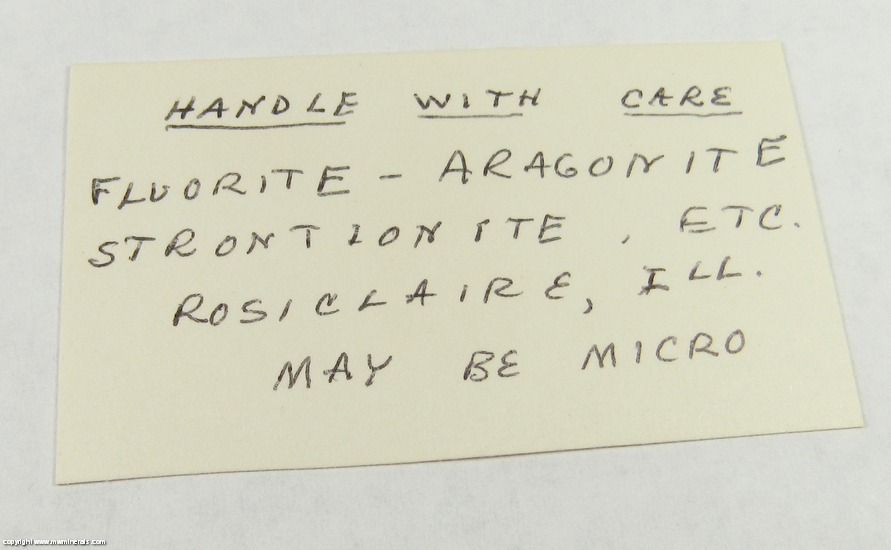 HANDLE WITH CARE
FLUORITE - ARAGONITE
STRONTIONITE, ETC.
ROSICLAIRE, ILL.
MAY BE MICRO
copyright www.mwminerals.com